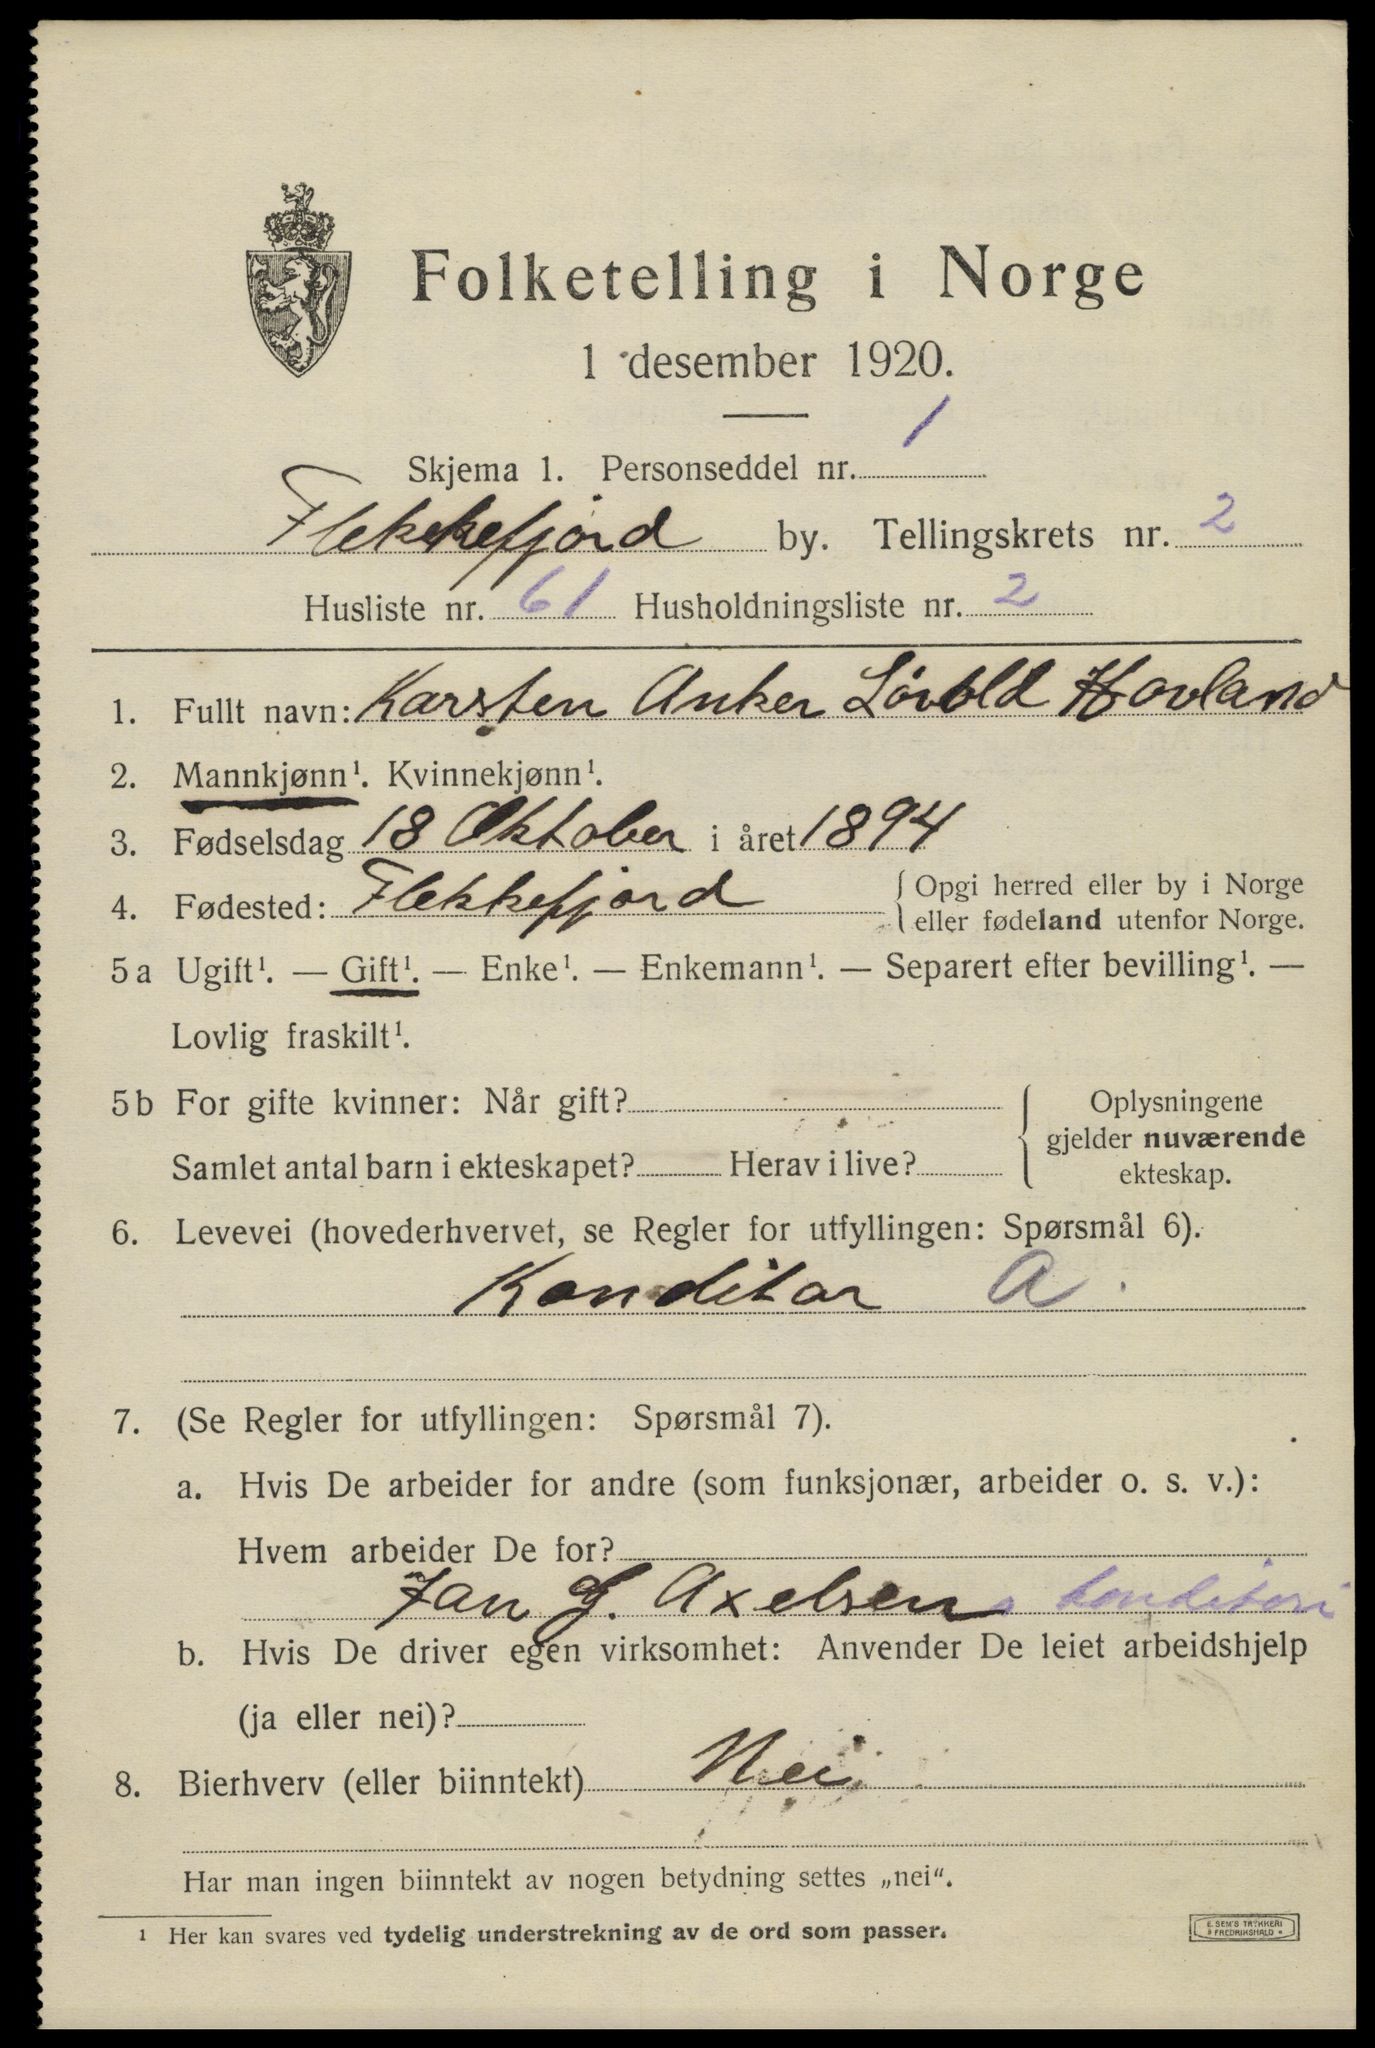 Folketelling i Norge
1 desember 1920.
Skjema 1. Personseddel nr. 1
Flekkefjord by. Tellingskrets nr. 2
Husliste nr. 61 Husholdningsliste nr. 2
1. Fullt navn: Karsten Anker Lövold Hovland
2. Mannkjønn¹. Kvinnekjønn¹.
3. Fødselsdag 18 Oktober i året 1894
4. Fødested: Flekkefjord { Opgi herred eller by i Norge
eller fødeland utenfor Norge.
5a Ugift¹. — Gift¹. — Enke¹. — Enkemann¹. — Separert efter bevilling¹. —
Lovlig fraskilt¹.
5b For gifte kvinner: Når gift?
Samlet antal barn i ekteskapet? Herav i live?
{ Oplysningene
gjelder nuværende
ekteskap.
6. Levevei (hovederhvervet, se Regler for utfyllingen: Spørsmål 6).
Konditor A
7. (Se Regler for utfyllingen: Spørsmål 7).
a. Hvis De arbeider for andre (som funksjonær, arbeider o. s. v.):
Hvem arbeider De for?
Jan G. Axelsens konditori
b. Hvis De driver egen virksomhet: Anvender De leiet arbeidshjelp
(ja eller nei)?
8. Bierhverv (eller biinntekt) Nei
Har man ingen biinntekt av nogen betydning settes „nei“.
¹ Her kan svares ved tydelig understrekning av de ord som passer.
E. SEM'S TRYKKERI
FREDRIKSHALD